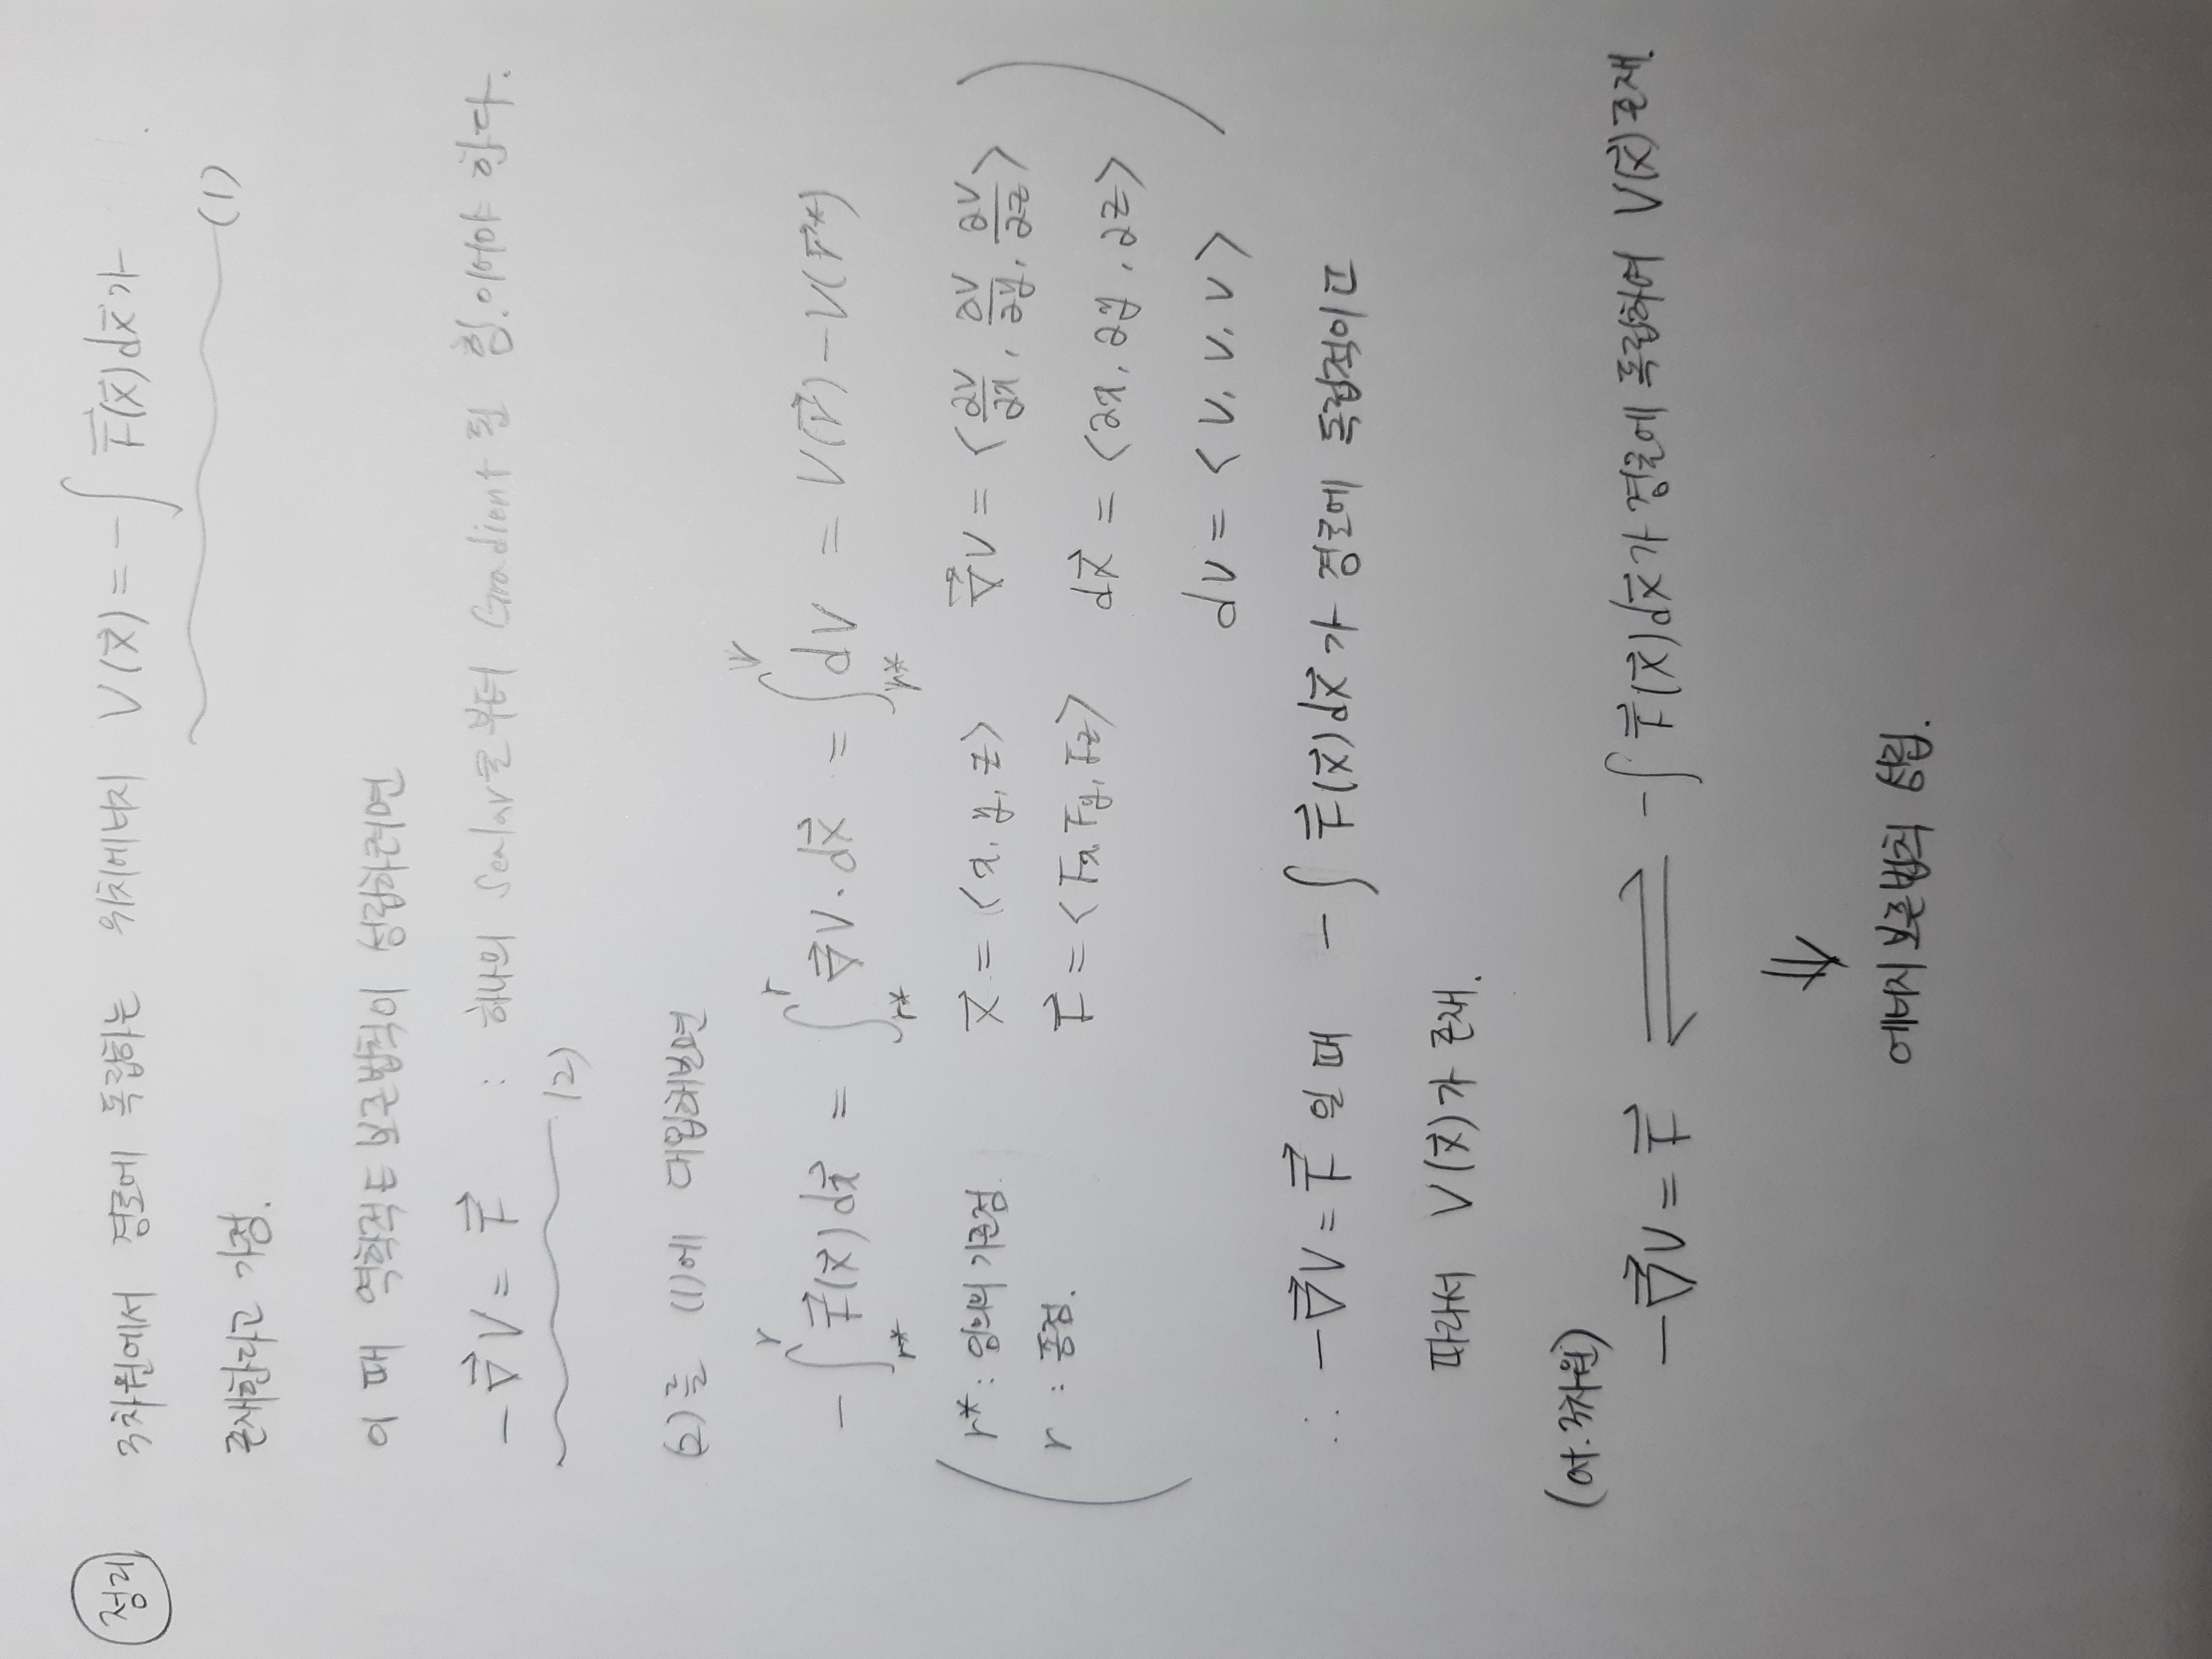 정리
3차원에서 경로에 독립하는 위치에너지 V(x⃗) = - ∫ F⃗(x⃗)dx⃗가
(1)
존재한다고 가정.
이 때 역학적E 보존법칙이 성립하려면
-∇⃗V = F⃗ : 하나의 Scalar로부터 Gradient 된 힘.이어야 한다.
(2)
(2)를 (1)에 대입해보면
-∫_{r*}^{r} F⃗(x⃗)dx⃗ = ∫_{r*}^{r} ∇⃗V·dx⃗ = ∫_{r*}^{r} dV = V(r⃗) - V(r*)
r* : 임의의 기준점 x⃗ = <x, y, z> ∇⃗V = <∂V/∂x, ∂V/∂y, ∂V/∂z>
r : 종점. F⃗ = <Fx, Fy, Fz> dx⃗ = <∂x, ∂y, ∂z>
dV = <V, V, V>
∴ -∇⃗V = F⃗ 일 때 - ∫ F⃗(x⃗)dx⃗가 경로에 독립적이고
따라서 V(x⃗)가 존재.
(in 3차원)
-∇⃗V = F⃗ ⇌ - ∫ F⃗(x⃗)dx⃗가 경로에 독립하여 V(x⃗)존재.
⇓
에너지 보존법칙 성립.